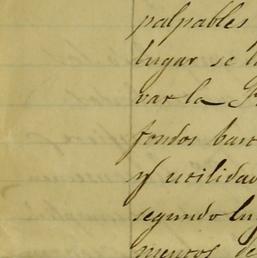 palpables
lugar se
var la
fondos
y utilidad
segundo lu
mentos de